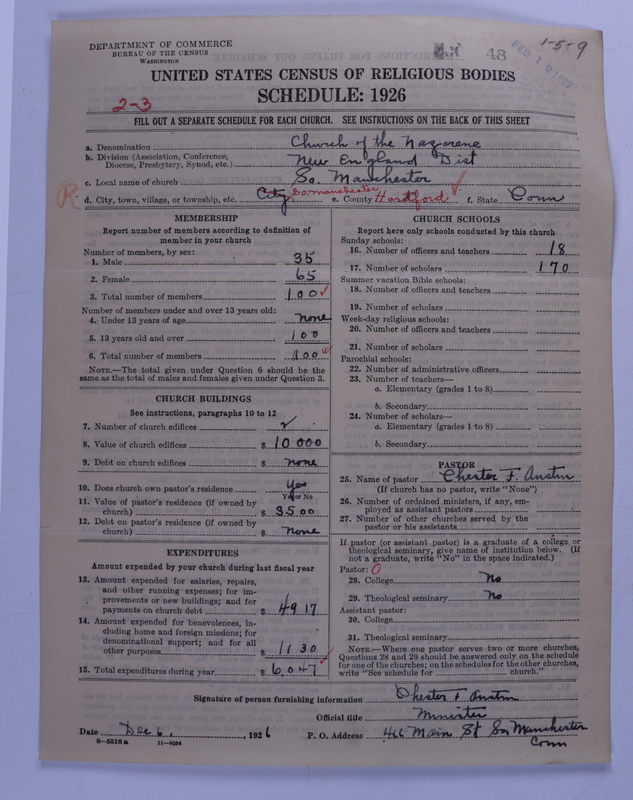 DEPARTMENT OF COMMERCE
BUREAU OF THE CENSUS
WASHINGTON
43
FEB 1
1-5-9
UNITED STATES CENSUS OF RELIGIOUS BODIES
SCHEDULE: 1926
2-3
FILL OUT A SEPARATE SCHEDULE FOR EACH CHURCH. SEE INSTRUCTIONS ON THE BACK OF THIS SHEET
a. Denomination Church of the Nazarene
b. Division (Association, Conference, Diocese, Presbytery, Synod, etc.) New England Dist
c. Local name of church So. Manchester
R. d. City, town, village, or township, etc. City So. manchester e. County Hartford f. State Conn
MEMBERSHIP
Report number of members according to definition of
member in your church
Number of members, by sex:
1. Male 35
2. Female 65
3. Total number of members 100
Number of members under and over 13 years old:
4. Under 13 years of age none
5. 13 years old and over 100
6. Total number of members 100
NOTE.—The total given under Question 6 should be the
same as the total of males and females given under Question 3.
CHURCH BUILDINGS
See instructions, paragraphs 10 to 12
7. Number of church edifices 2
8. Value of church edifices $ 10 000
9. Debt on church edifices $ none
10. Does church own pastor's residence Yes
Yes or No
11. Value of pastor's residence (if owned by
church) $ 3500
12. Debt on pastor's residence (if owned by
church) $ none
EXPENDITURES
Amount expended by your church during last fiscal year
13. Amount expended for salaries, repairs,
and other running expenses; for im-
provements or new buildings; and for
payments on church debt $ 4917
14. Amount expended for benevolences, in-
cluding home and foreign missions; for
denominational support; and for all
other purposes $ 1130
15. Total expenditures during year $ 6,047
CHURCH SCHOOLS
Report here only schools conducted by this church
Sunday schools:
16. Number of officers and teachers 18
17. Number of scholars 170
Summer vacation Bible schools:
18. Number of officers and teachers
19. Number of scholars
Week-day religious schools:
20. Number of officers and teachers
21. Number of scholars
Parochial schools:
22. Number of administrative officers
23. Number of teachers—
a. Elementary (grades 1 to 8)
b. Secondary
24. Number of scholars—
a. Elementary (grades 1 to 8)
b. Secondary
PASTOR
25. Name of pastor Chester F. Austin
(If church has no pastor, write "None")
26. Number of ordained ministers, if any, em-
ployed as assistant pastors
27. Number of other churches served by the
pastor or his assistants
If pastor (or assistant pastor) is a graduate of a college or
theological seminary, give name of institution below. (If
not a graduate, write "No" in the space indicated.)
Pastor: 0
28. College No
29. Theological seminary No
Assistant pastor:
30. College
31. Theological seminary
NOTE.—Where one pastor serves two or more churches,
Questions 28 and 29 should be answered only on the schedule
for one of the churches; on the schedules for the other churches,
write "See schedule for church."
Signature of person furnishing information Chester F Austin
Official title Minister
Date Dec 6, 1926 P. O. Address 466 Main St So Manchester
Conn
8—5518a 11—9034